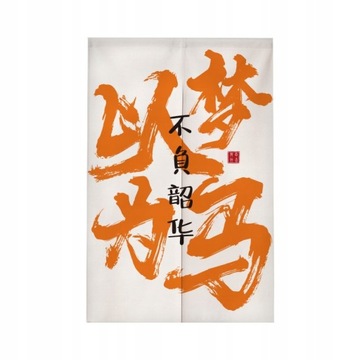 以梦为马
不負韶华